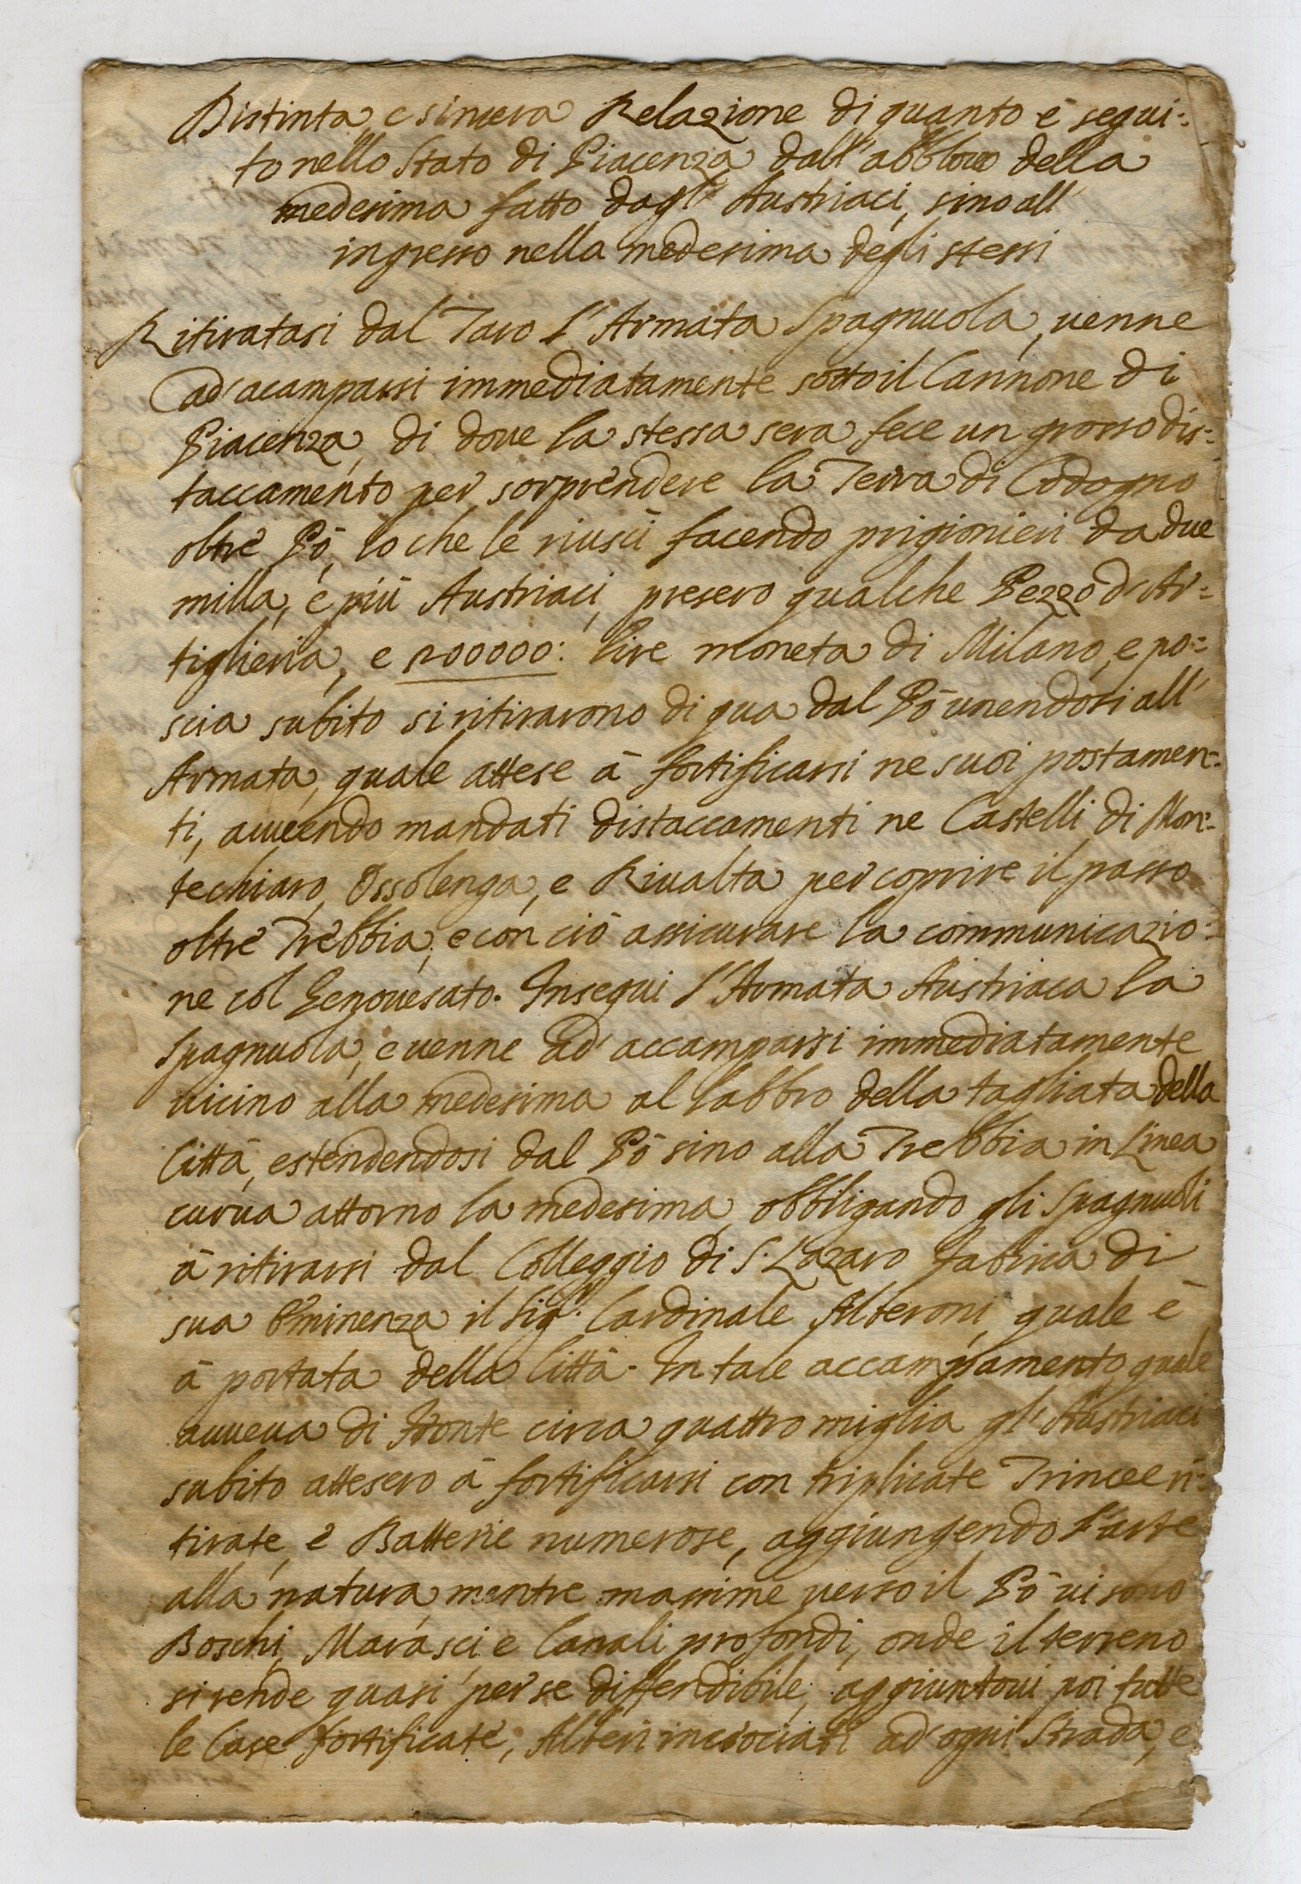 Distinta e sincera Relazione di quanto è segui:
to nello Stato di Piacenza dall'abbloco della
medesima fatto dagli Austriaci, sino all'
ingresso nella medesima degli stessi
Ritiratasi dal Taro l'Armata Spagnuola, venne
ad acamparsi immediatamente sotto il Cannone di
Piacenza, di dove la stessa sera fece un grosso dis:
taccamento per sorprendere la Terra di Codogno
oltre Pò, lo che le riuscì facendo prigionieri da due
milla, e più Austriaci, presero qualche Pezzo d'Ar:
tiglieria, e 200000: lire moneta di Milano, e po:
scia subito si ritirarono di qua dal Pò unendosi all'
Armata, quale attese à fortificarsi ne suoi postamen:
ti, avvendo mandati distaccamenti ne Castelli di Mon:
techiaro, Ossolenga, e Rivalta per coprire il passo
oltre Trebbia, e con ciò assicurare la communicazio:
ne col Genovesato. Inseguì l'Armata Austriaca la
Spagnuola, e venne ad accamparsi immediatamente
vicino alla medesima al labbro della tagliata della
Città, estendendosi dal Pò sino alla Trebbia in Linea
curva attorno la medesima, obbligando gli Spagnuoli
à ritirarsi dal Colleggio di S. Lazaro fabrica di
sua Eminenza il Sigr. Cardinale Alteroni, quale è
à portata della Città. In tale accampamento quale
avveva di fronte circa quattro miglia gl'Austriaci
subito attesero à fortificarsi con triplicate Trinceeri:
tirate, e Batterie numerose, aggiungendo l'arte
alla natura, mentre massime verso il Pò vi sono
Boschi, Marasci e Canali profondi, onde il terreno
si rende quasi per se diffendibile, aggiuntovi poi tutte
le Case fortificate, Alberi incrociati ad ogni Strada, e